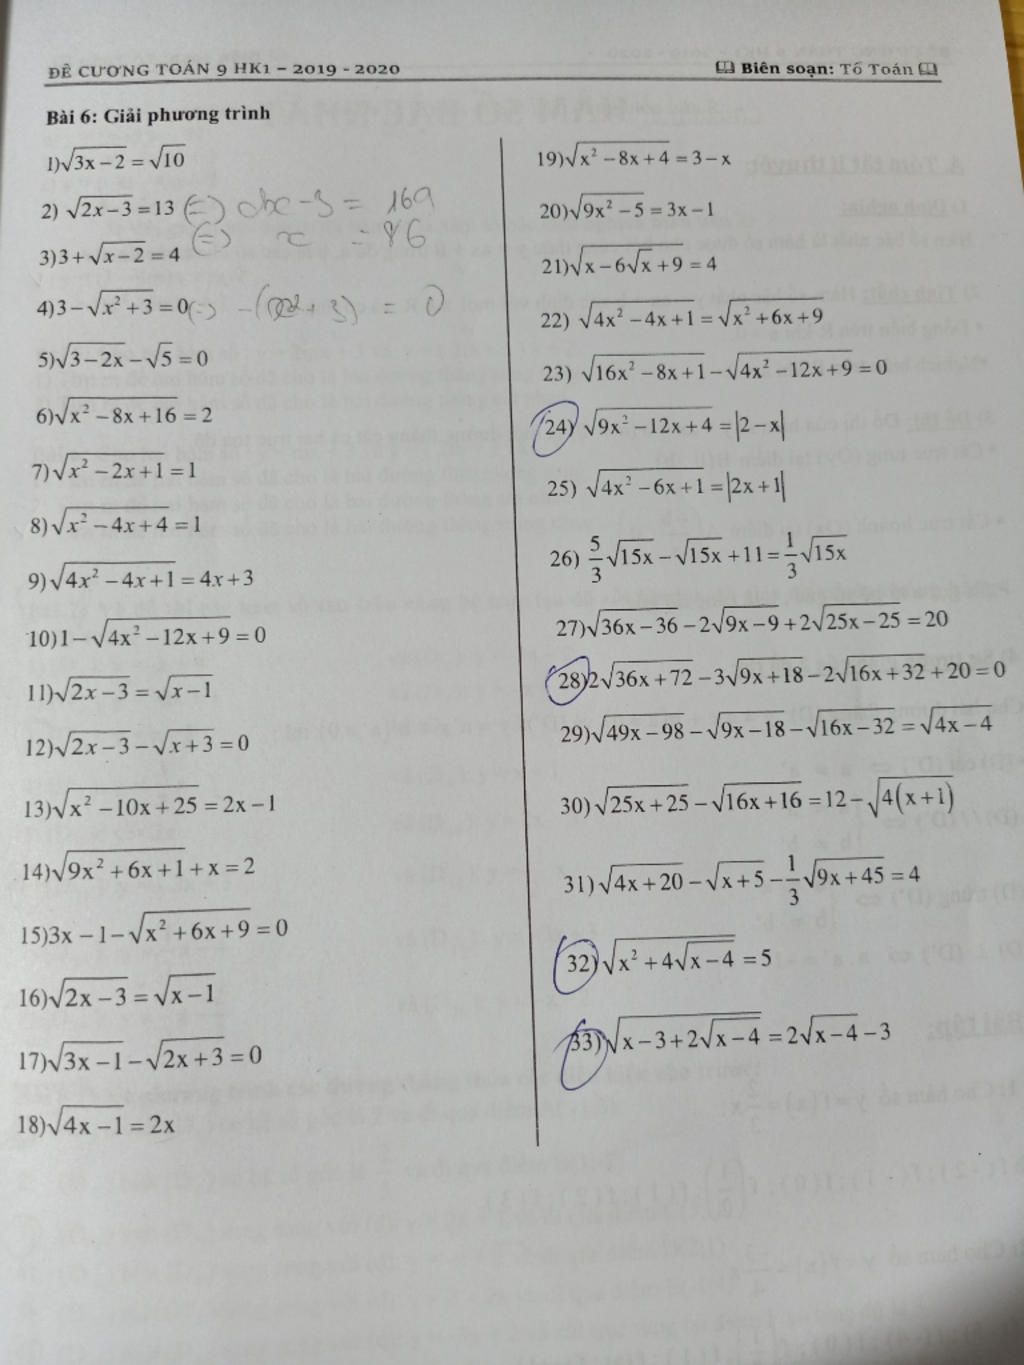 ĐỀ CƯƠNG TOÁN 9 HK1 – 2019 - 2020
🕮 Biên soạn: Tổ Toán 🕮
Bài 6: Giải phương trình
1)√(3x−2) = √10
2) √(2x−3) = 13 (=) 2x - 3 = 169
(=) x = 86
3)3+√(x−2) = 4
4)3−√(x²+3) = 0 (=) -(x²+3) = 0
5)√(3−2x) −√5 = 0
6)√(x²−8x+16) = 2
7)√(x²−2x+1) = 1
8)√(x²−4x+4) = 1
9)√(4x²−4x+1) = 4x+3
10)1−√(4x²−12x+9) = 0
11)√(2x−3) = √(x−1)
12)√(2x−3) −√(x+3) = 0
13)√(x²−10x+25) = 2x−1
14)√(9x²+6x+1) + x = 2
15)3x−1−√(x²+6x+9) = 0
16)√(2x−3) = √(x−1)
17)√(3x−1) −√(2x+3) = 0
18)√(4x−1) = 2x
19)√(x²−8x+4) = 3−x
20)√(9x²−5) = 3x−1
21)√(x−6√x+9) = 4
22) √(4x²−4x+1) = √(x²+6x+9)
23) √(16x²−8x+1) −√(4x²−12x+9) = 0
24) √(9x²−12x+4) = |2−x|
25) √(4x²−6x+1) = |2x+1|
26) 5/3√(15x) −√(15x) +11 = 1/3√(15x)
27)√(36x−36) −2√(9x−9) +2√(25x−25) = 20
28)2√(36x+72) −3√(9x+18) −2√(16x+32) +20 = 0
29)√(49x−98) −√(9x−18) −√(16x−32) = √(4x−4)
30)√(25x+25) −√(16x+16) = 12−√(4(x+1))
31)√(4x+20) −√(x+5) −1/3√(9x+45) = 4
32)√(x²+4√(x−4)) = 5
33)√(x−3+2√(x−4)) = 2√(x−4) −3